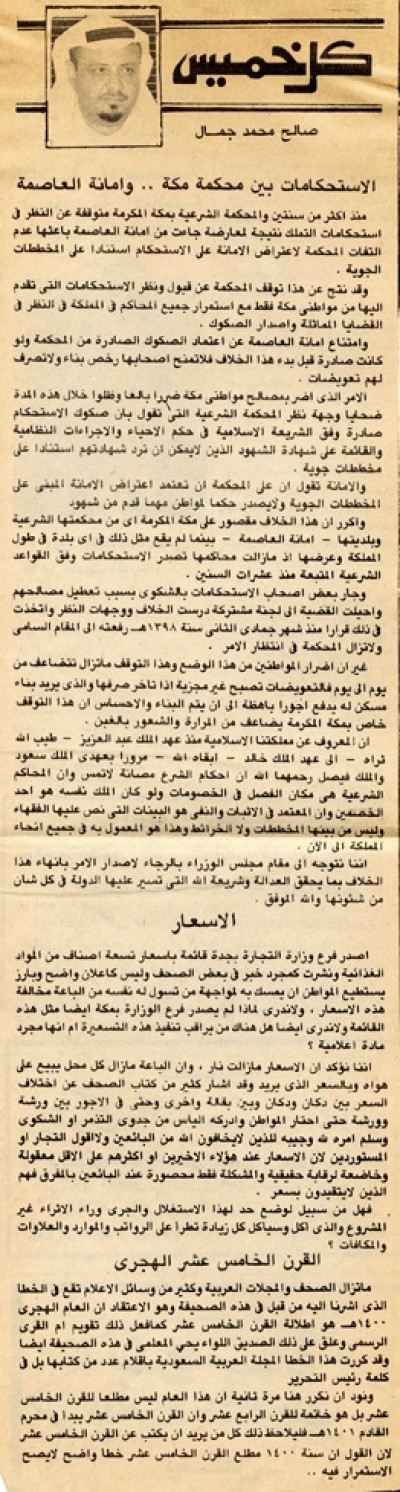 كل خميس
صالح محمد جمال
الاستحكامات بين محكمة مكة .. وامانة العاصمة
منذ اكثر من سنتين والمحكمة الشرعية بمكة المكرمة متوقفة عن النظر في
استحكامات التملك نتيجة لمعارضة جاءت من امانة العاصمة باعثها عدم
التفات المحكمة لاعتراض الامانة على الاستحكام استنادا على المخططات
الجوية .
وقد نتج عن هذا توقف المحكمة عن قبول ونظر الاستحكامات التى تقدم
اليها من مواطنى مكة فقط مع استمرار جميع المحاكم في المملكة في النظر في
القضايا المماثلة واصدار الصكوك .
وامتناع امانة العاصمة عن اعتماد الصكوك الصادرة من المحكمة ولو
كانت صادرة قبل بدء هذا الخلاف فلاتمنح اصحابها رخص بناء ولاتصرف
لهم تعويضات .
الامر الذى اضر بمصالح مواطنى مكة ضررا بالغا وظلوا خلال هذه المدة
ضحايا وجهة نظر المحكمة الشرعية التى تقول بان صكوك الاستحكام
صادرة وفق الشريعة الاسلامية في حكم الاحياء والاجراءات النظامية
والقائمة على شهادة الشهود الذين لايمكن ان ترد شهادتهم استنادا على
مخططات جوية .
والامانة تقول ان على المحكمة ان تعتمد اعتراض الامانة المبنى على
المخططات الجوية ولايصدر حكما لمواطن مهما قدم من شهود
واكرر ان هذا الخلاف مقصور على مكة المكرمة اى من محكمتها الشرعية
وبلديتها - امانة العاصمة - بينما لم يقع مثل ذلك في اى بلدة في طول
المملكة وعرضها اذ مازالت محاكمها تصدر الاستحكامات وفق القواعد
الشرعية المتبعة منذ عشرات السنين .
وجار بعض اصحاب الاستحكامات بالشكوى بسبب تعطيل مصالحهم
واحيلت القضية الى لجنة مشتركة درست الخلاف ووجهات النظر واتخذت
في ذلك قرارا منذ شهر جمادى الثانى سنة ١٣٩٨هـ رفعته الى المقام السامى
ولاتزال المحكمة في انتظار الامر .
غير ان اضرار المواطنين من هذا الوضع وهذا التوقف ماتزال تتضاعف من
يوم الى يوم فالتعويضات تصبح غير مجزية اذا تاخر صرفها والذى يريد بناء
مسكن له يدفع اجورا باهظة الى ان يتم البناء والاحساس ان هذا التوقف
خاص بمكة المكرمة يضاعف من المرارة والشعور بالغبن .
ان المعروف عن مملكتنا الاسلامية منذ عهد الملك عبد العزيز - طيب الله
ثراه - الى عهد الملك خالد - ابقاه الله - مرورا بعهدى الملك سعود
والملك فيصل رحمهما الله ان احكام الشرع مصانة لاتمس وان المحاكم
الشرعية هى مكان الفصل في الخصومات ولو كان الملك نفسه هو احد
الخصمين وان المعتمد في الاثبات والنفى هو البينات التى نص عليها الفقهاء
وليس من بينها المخططات ولا الخرائط وهذا هو المعمول به في جميع انحاء
المملكة الى الآن .
اننا نتوجه الى مقام مجلس الوزراء بالرجاء لاصدار الامر بانهاء هذا
الخلاف بما يحقق العدالة وشريعة الله التى تسير عليها الدولة في كل شان
من شئونها والله الموفق .
الاسعار
اصدر فرع وزارة التجارة بجدة قائمة باسعار تسعة اصناف من المواد
الغذائية ونشرت كمجرد خبر في بعض الصحف وليس كاعلان واضح وبارز
يستطيع المواطن ان يمسك به لمواجهة من تسول له نفسه من الباعة مخالفة
هذه الاسعار ، ولاندرى لماذا لم يصدر فرع الوزارة بمكة ايضا مثل هذه
القائمة ولاندرى ايضا هل هناك من يراقب تنفيذ هذه التسعيرة ام انها مجرد
مادة اعلامية ؟
اننا نؤكد ان الاسعار مازالت نار ، وان الباعة مازال كل محل يبيع على
هواه وبالسعر الذى يريد وقد اشار كثير من كتاب الصحف عن اختلاف
السعر بين دكان ودكان وبين بقالة واخرى وحتى في الاجور بين ورشة
وورشة حتى احتار المواطن وادركه الياس من جدوى التذمر او الشكوى
وسلم امره لله وجيبه للذين لايخافون الله من البائعين ولااقول التجار او
المستوردين لان الاسعار عند هؤلاء الاخيرين او اكثرهم على الاقل معقولة
وخاضعة لرقابة حقيقية والمشكلة فقط محصورة عند البائعين بالمفرق فهم
الذين لايتقيدون بسعر .
فهل من سبيل لوضع حد لهذا الاستغلال والجرى وراء الاثراء غير
المشروع والذى اكل وسياكل كل زيادة تطرأ على الرواتب والموارد والعلاوات
والمكافآت ؟
القرن الخامس عشر الهجرى
ماتزال الصحف والمجلات العربية وكثير من وسائل الاعلام تقع في الخطا
الذى اشرنا اليه من قبل في هذه الصحيفة وهو الاعتقاد ان العام الهجرى
١٤٠٠هـ هو اطلالة القرن الخامس عشر كمافعل ذلك تقويم ام القرى
الرسمى وعلق على ذلك الصديق اللواء يحي المعلمى في هذه الصحيفة ايضا
وقد كررت هذا الخطا المجلة العربية السعودية باقلام عدد من كتابها بل في
كلمة رئيس التحرير
ونود ان نكرر هنا مرة ثانية ان هذا العام ليس مطلعا للقرن الخامس
عشر بل هو خاتمة للقرن الرابع عشر وان القرن الخامس عشر يبدا في محرم
القادم ١٤٠١هـ فليلاحظ ذلك كل من يريد ان يكتب عن القرن الخامس عشر
لان القول ان سنة ١٤٠٠ مطلع القرن الخامس عشر خطا واضح لايصح
الاستمرار فيه ..